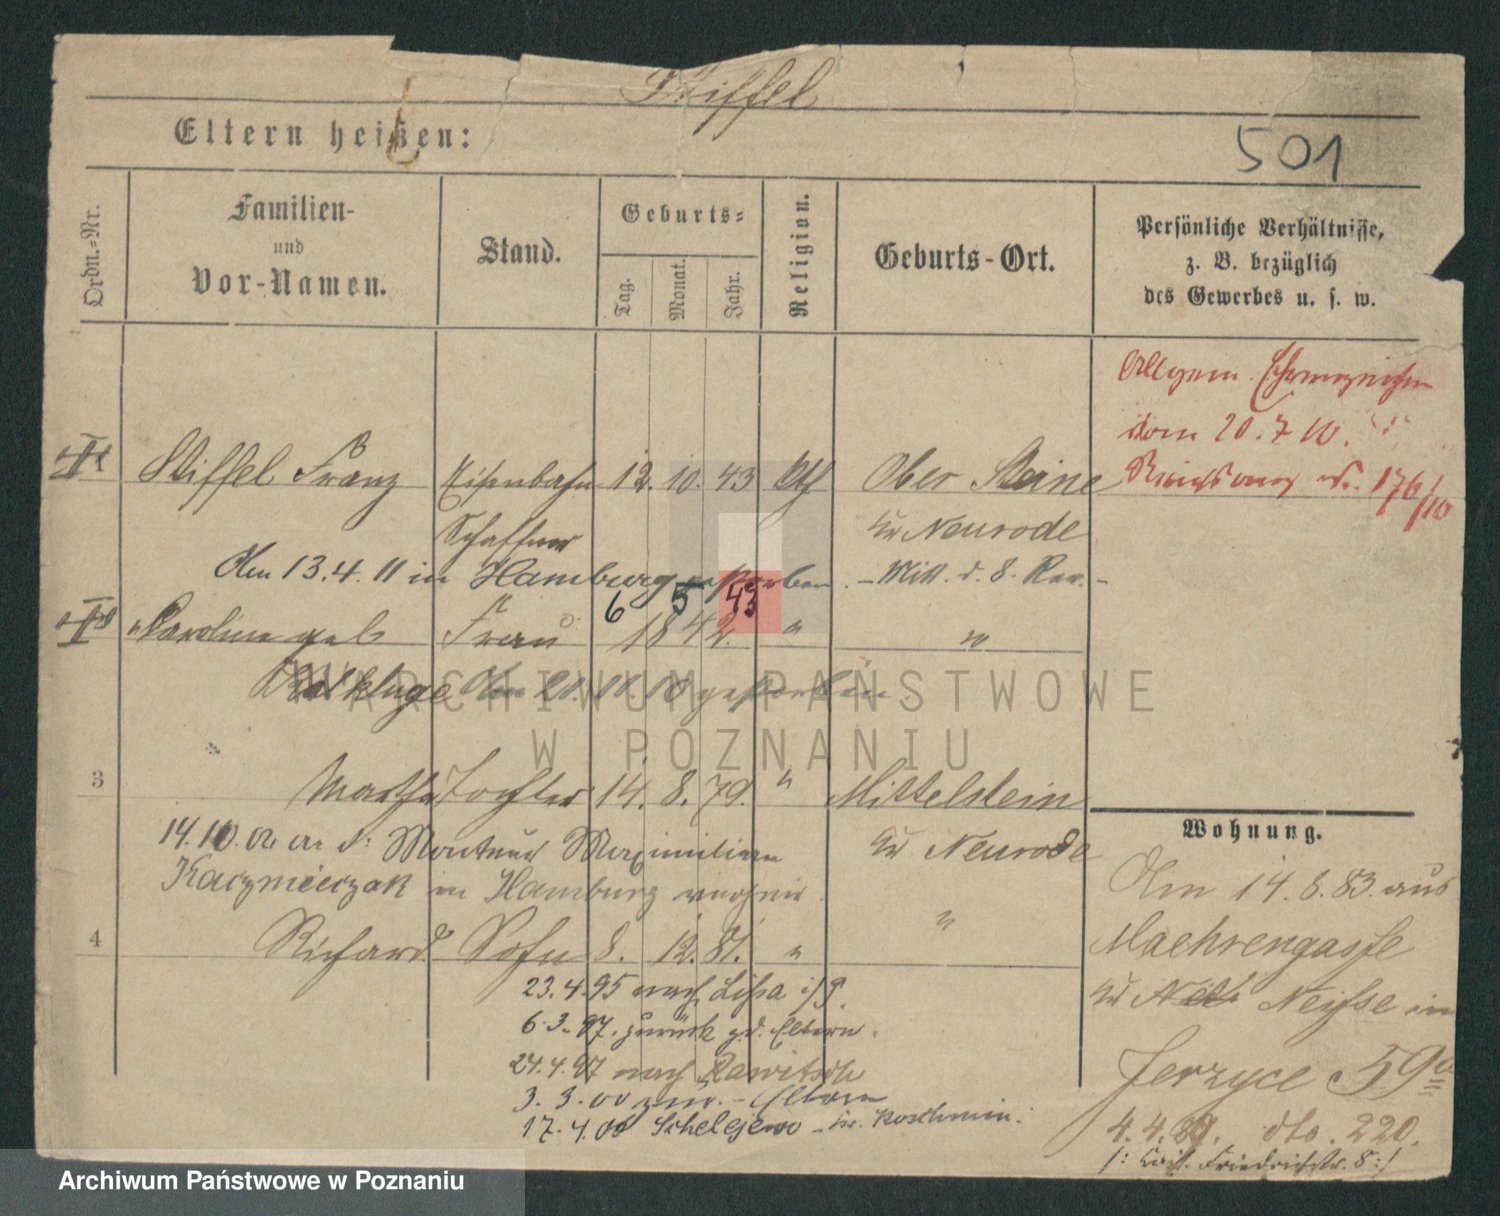 Stiffel
Eltern heißen:
501
Ordn.-Nr.
Familien-
und
Vor-Namen.
Stand.
Geburts-
Tag.
Monat.
Jahr.
Religion.
Geburts-Ort.
Persönliche Verhältnisse,
z. B. bezüglich
des Gewerbes u. s. w.
Allgem. Ehrenzeichen
vom 20.7.10.
176/10
Stiffel Franz Eisenbahn 12. 10. 43 kth Ober Steine
Schaffner Kr Neurode
Am 13.4.11 in Hamburg gestorben. - Mitt. d. 8. Rev. -
6 5 43
Caroline geb Frau 1842. " "
Am 21.11.10 gestorben.
3 Martha Tochter 14. 8. 79. " Mittelstein
Kr Neurode
14.10.02 an d. Monteur Maximilian
Kaczmierczak in Hamburg verheir.
4 Richard Sohn 8. 12. 81. " "
23.4.95 nach Lissa i/P.
6.3.97. zurück z. d. Eltern.
24.4.97 nach Rawitsch
3.3.00 zur. - Eltern
17.4.00 Schelejewo - Kr. Koschmin.
Wohnung.
Am 14.8.83. aus
Maehrengasse
Kr Neisse in
Jerzyce 59a
4.4.89. dto. 220.
/: Kais. Friedrichstr. 8 :/
ARCHIWUM PAŃSTWOWE
W POZNANIU
Archiwum Państwowe w Poznaniu